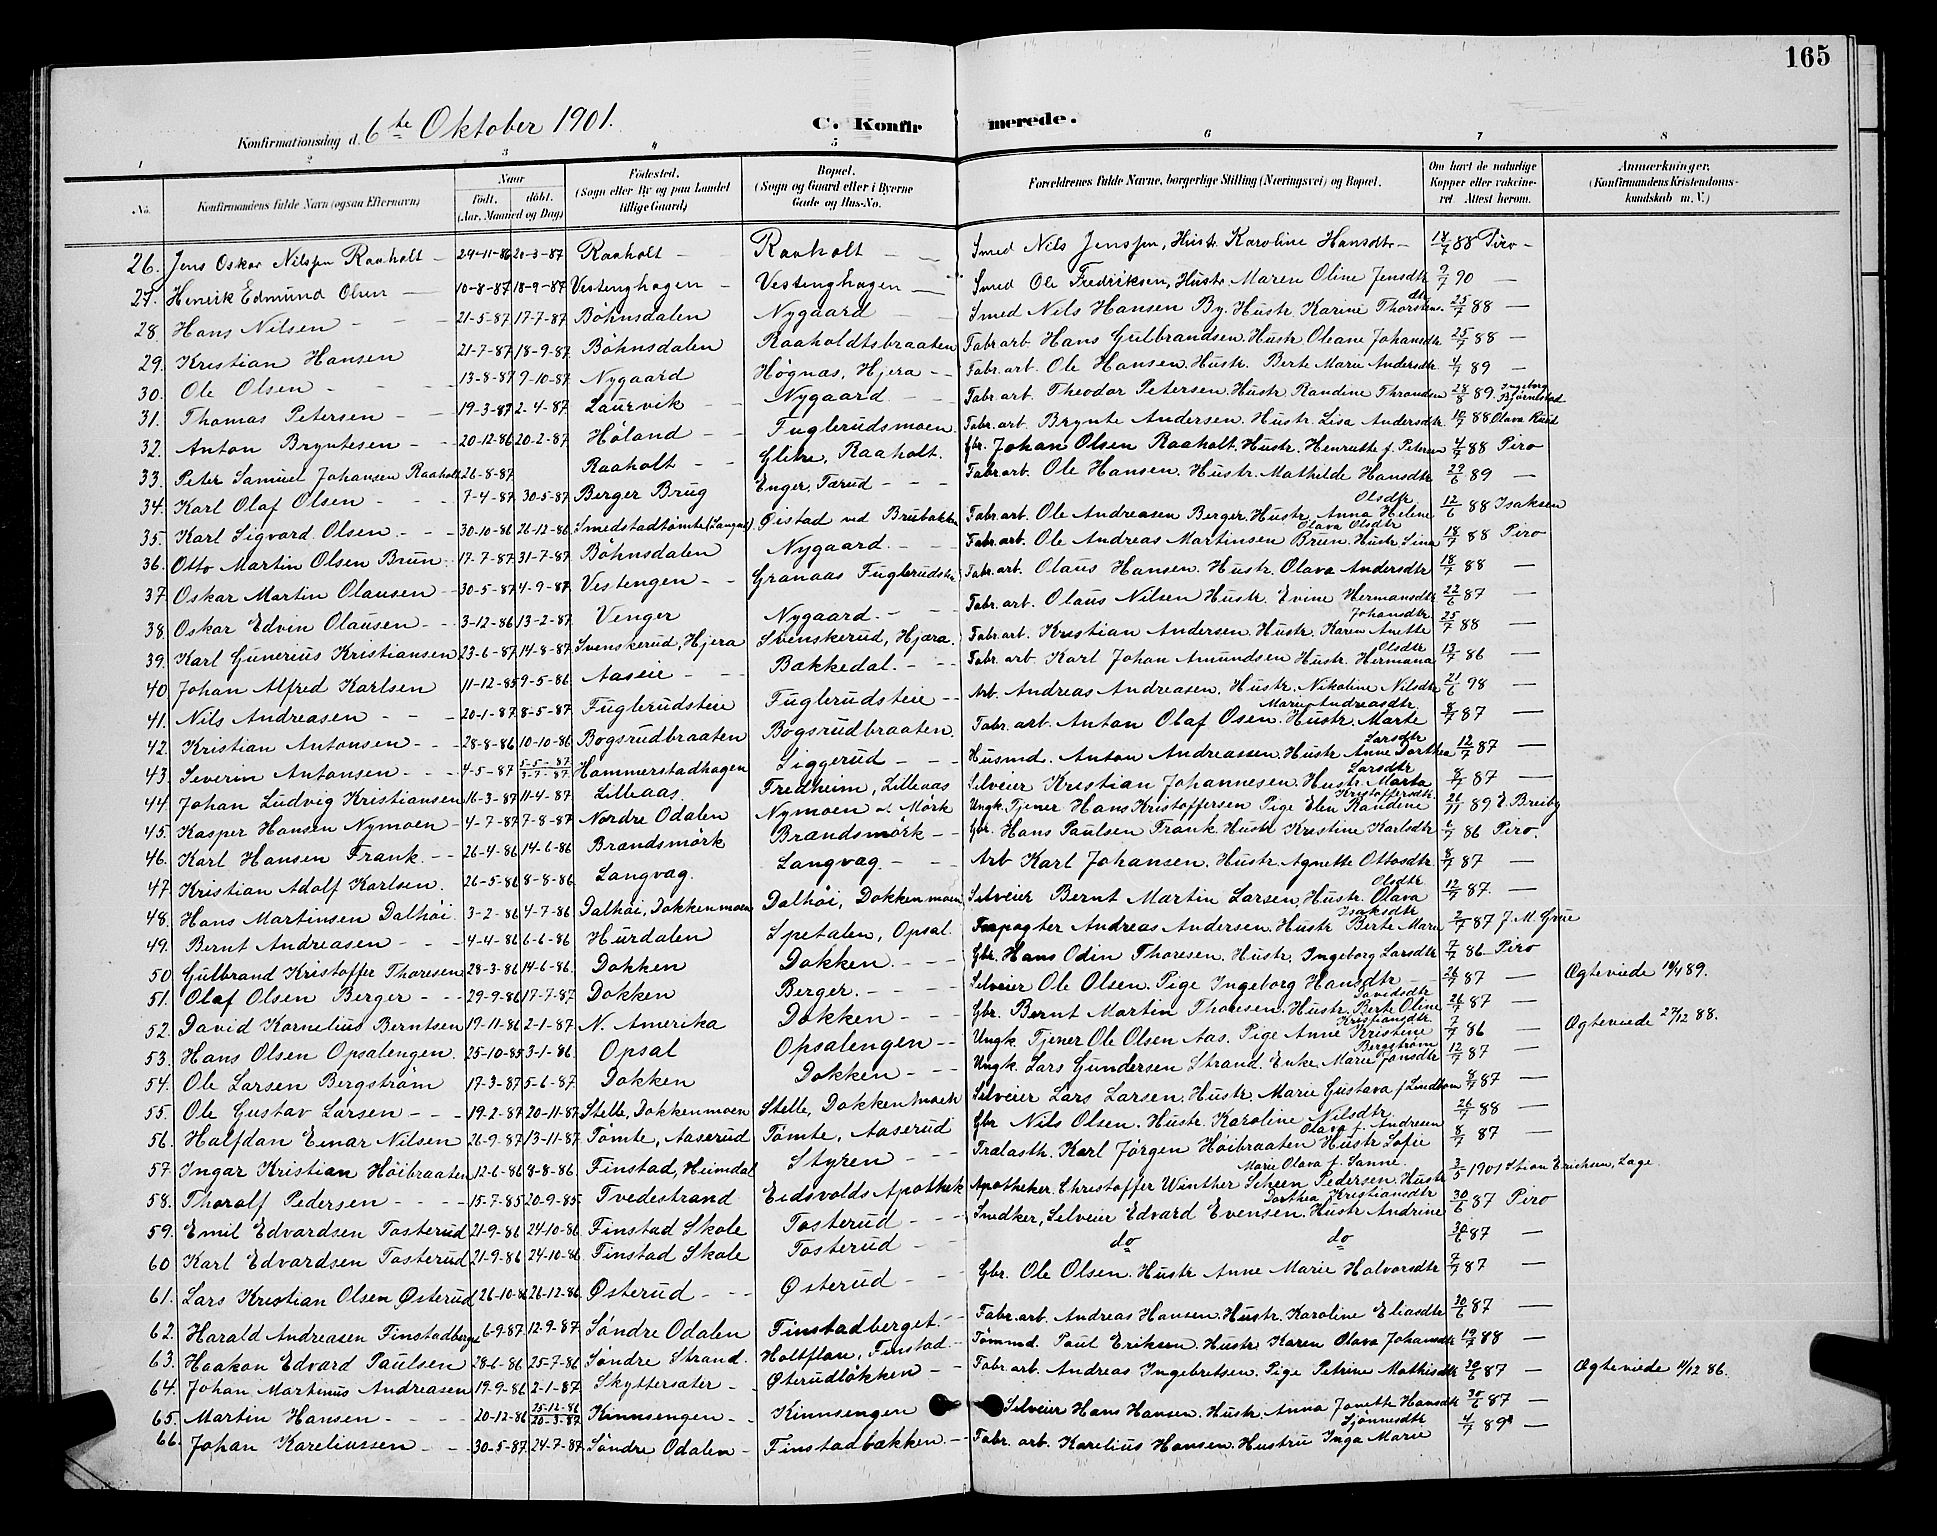 165
Konfirmationsdag d. 6te Oktober 1901.
C. Konfirmerede.
1 2 3 4 5 6 7 8
No. Konfirmandens fulde Navn (ogsaa Efternavn) Naar født. døbt. (Aar, Maaned og Dag) Fødested. (Sogn eller By og paa Landet tillige Gaard) Bopæl. (Sogn og Gaard eller i Byerne Gade og Hus-No. Forældrenes fulde Navne, borgerlige Stilling (Næringsvei) og Bopæl. Om havt de naturlige Kopper eller vakcineret. Attest herom. Anmærkninger. (Konfirmandens Kristendomskundskab m. V.)
26. Jens Oskar Nilsen Raaholt 24-11-86 20-3-87 Raaholt Raaholt Smed Nils Jenssen, Hustr. Karoline Hansdtr 18/7 88 Piro
27. Henrik Edmund Olsen 10-8-87 18-9-87 Vestenghagen Vestenghagen Smed Ole Fredriksen, Hustr. Maren Oline Jensdtr 9/7 90 —
28. Hans Nilsen 21-5-87 17-7-87 Bøhnsdalen Nygaard Smed Nils Hansen By. Hustr. Karine Thorstensdtr 25/7 88 —
29. Kristian Hansen 21-7-87 18-9-87 Bøhnsdalen Raaholdtsbraaten Fabr.arb. Hans Gulbrandsen. Hustr. Oleane Johansdtr 25/7 88 —
30. Ole Olsen 13-8-87 9-10-87 Nygaard Høgnas, Hjera Fabr.arb. Ole Hansen. Hustr. Berte Marie Andersdtr. 4/7 89 —
31. Thomas Petersen 19-3-87 2-4-87 Laurvik Nygaard Fabr.arb. Theodor Petersen. Hustr. Randine Thronsen 28/8 89 Ingeborg Bjørnstad
32. Anton Bryntesen 20-12-86 20-2-87 Høland Fuglerudsmoen Fabr.arb. Brynte Andersen. Hustr. Lisa Andersdtr. 10/7 88 Olava Ruud
33. Peter Samuel Johansen Raaholt 26-8-87 Raaholt Glitre, Raaholt. Gbr. Johan Olsen Raaholt. Hustr. Henrette f. Petersen 4/7 88 Piro
34. Karl Olaf Olsen 7-4-87 30-5-87 Berger Brug Enger, Tærud Fabr.arb. Ole Hansen. Hustr. Mathilde Hansdtr 29/6 89 —
35. Karl Sigvard Olsen 30-10-86 26-12-86 Smedstadtømte (Langset) Øistad ved Brubakken Fabr.arb. Ole Andreasen Berger. Hustr. Anna Helene Olsdtr 12/6 88 Isaksen
36. Otto Martin Olsen Brun 17-7-87 31-7-87 Bøhnsdalen Nygaard Fabr.arb. Ole Andreas Martinsen Brun. Hustr. Lina Olava Olsdtr 18/7 88 Piro
37. Oskar Martin Olausen 30-5-87 4-9-87 Vestengen Granaas Fuglerudstr Fabr.arb. Olaus Hansen. Hustr. Olava Andersdtr 18/7 88 —
38. Oskar Edvin Olausen 3-12-86 13-2-87 Venger Nygaard Fabr.arb. Olaus Nilsen Hustr. Evine Hermansdtr 22/6 87 —
39. Karl Gunerius Kristiansen 23-6-87 14-8-87 Svenskerud, Hjera Svenskerud, Hjera. Fabr.arb. Kristian Andersen. Hustr. Karen Anette Johansdtr 25/7 88 —
40. Johan Alfred Karlsen 11-12-85 9-5-86 Aaseie Bakkedal. Fabr. arb. Karl Johan Amundsen Hustr. Hermana Olsdtr 13/7 86 —
41. Nils Andreasen 20-1-87 8-5-87 Fuglerudsteie Fuglerudsteie Arb. Andreas Andreasen. Hustr. Nikoline Nilsdtr 21/6 98 —
42. Kristian Antonsen 28-8-86 10-10-86 Bogsrudbraaten Bogsrudbraaten. Fabr. arb. Anton Olaf Osen. Hustr. Marte Marie Andreasdtr. 8/7 87 —
43. Severin Antonsen 4-5-87 5-5-87 / 3-7-87 Hammerstadhagen Siggerud Husmd. Anton Andreassen. Hustr. Anne Dorthea Larsdtr 12/7 87 —
44. Johan Ludvig Kristiansen 16-3-87 11-4-87 Lilleaas. Fredheim, Lilleaas Selveier Kristian Johannesen. Hustr. Marta Larsdtr 8/7 87 —
45. Kasper Hansen Nymoen 4-7-87 7-8-87 Nordre Odalen Nymoen v. Mørk Ungk. Tjener Hans Kristoffersen Pige Elen Randine Kristoffersdtr. 21/11 89 E. Breiby
46. Karl Hansen Frank 26-4-86 14-6-86 Brandsmørk Brandsmørk Gbr. Hans Paulsen Frank. Hustr Kristine Karlsdtr 6/7 86 Piro.
47. Kristian Adolf Karlsen. 26-5-86 8-8-86 Langvag. Langvag Arb Karl Johansen. Hustr. Agnette Ottosdtr 8/7 87 —
48. Hans Martinsen Dalhøi 3-2-86 4-7-86 Dalhøi, Dokkenmoen Dalhøi, Dokkenmoen Selveier Bernt Martin Larsen, Hustr. Olava Olsdtr 12/7 87. —
49. Bernt Andreasen 4-4-86 6-6-86 Hurdalen Spetalen, Opsal Forpagter Andreas Andersen. Hustr Berte Marie Isaksdtr 2/7 87 J. M. Gvne
50. Gulbrand Kristoffer Thoresen 28-3-86 14-6-86. Dokken Dokken. Gbr. Hans Odin Thoresen. Hustr. Ingeborg Larsdtr 7/7 86 Piro
51. Olaf Olsen Berger 29-9-86 17-7-87 Dokken Berger. Selveier Ole Olsen. Pige Ingeborg Hansdtr 26/7 87 — Ægteviede 19/4 89.
52. David Kornelius Berntsen 19-11-86 2-1-87 N. Amerika Dokken Gbr. Bernt Martin Thoresen. Hustr. Berte Oline Davidsdtr 26/7 87 —
53. Hans Olsen Opsalengen. 25-10-85 3-1-86. Opsal Opsalengen Ungk. Tjener Ole Olsen Aas. Pige Anne Kristene Kristiansdtr 7/7 86 — Ægteviede 27/12 88.
54. Ole Larsen Bergstrøm 17-3-87 5-6-87 Dokken Dokken Ungk. Lars Gundersen Strand. Enke Marie Jonsdtr Bergstrøm 12/7 87 —
55. Ole Gustav Larsen 19-2-87 20-11-87 Stelle, Dokkenmoen Stelle, Dokkenmoen Selveier Lars Larsen. Hustr. Marie Gustava f. Lindbom 8/7 87 —
56. Halfdan Einar Nilsen 26-9-87 13-11-87 Tømte, Aaserud Tømte, Aaserud Gbr Nils Olsen. Hustr. Karoline Nilsdtr. 26/7 88 —
57. Ingar Kristian Høibraaten 12-6-86 8-8-86 Finstad, Heimdal Styren Trælasth. Karl Jørgen Høibraaten Hustr Sofie Olava f. Andresen 8/7 87 —
58. Thoralf Pedersen 15-7-85 20-9-85 Tvedestrand Eidsvolds Apothek Apotheker. Christoffer Winther Scheen Pedersen. Hustr Marie Olava f. Sanne. 3/5 1901 Stian Erichsen, Læge.
59. Emil Edvardsen Tosterud 21-9-86 24-10-86 Finstad Skole Tosterud Snedker, Selveier Edvard Evensen. Hustr Andrine Dorthea Kristiansdtr 30/6 87 Piro
60. Karl Edvardsen Tosterud 21-9-86 24-10-86 Finstad Skole Tosterud do do 30/6 87 —
61. Lars Kristian Olsen Østerud 26-10-86 26-12-86 Østerud Østerud Gbr. Ole Olsen. Hustr Anne Marie Halvorsdtr 7/7 87 —
62. Harald Andreasen Finstadberget 6-9-87 12-9-87 Søndre Odalen Finstadberget. Fabr.arb. Andreas Hansen. Hustr. Karoline Eliasdtr 30/6 87 —
63. Haakon Edvard Paulsen 28-6-86 25-7-86 Søndre Strand. Holtflan, Finstad Tømmd. Paul Eriksen. Hustr. Karen Olava Johansdtr 19/7 88 —
64. Johan Martinus Andreasen 19-9-86 2-1-87 Skyttersæter Østerudløkken Fabr. arb. Andreas Ingebretsen. Pige Petrine Mathisdtr 30/6 87 — Ægteviede 11/12 86.
65. Martin Hansen 20-12-86 25-12-86 / 20-3-87 Kinnsengen Kinnsengen Selveier Hans Hansen. Hustr. Anna Janette Hansdtr 30/6 87 —
66. Johan Kareliussen 30-5-87 24-7-87 Søndre Odalen Finstadbakken. Fabr. arb. Karelius Hansen. Hustru Inga Marie Sjønnesdtr 4/7 89 —